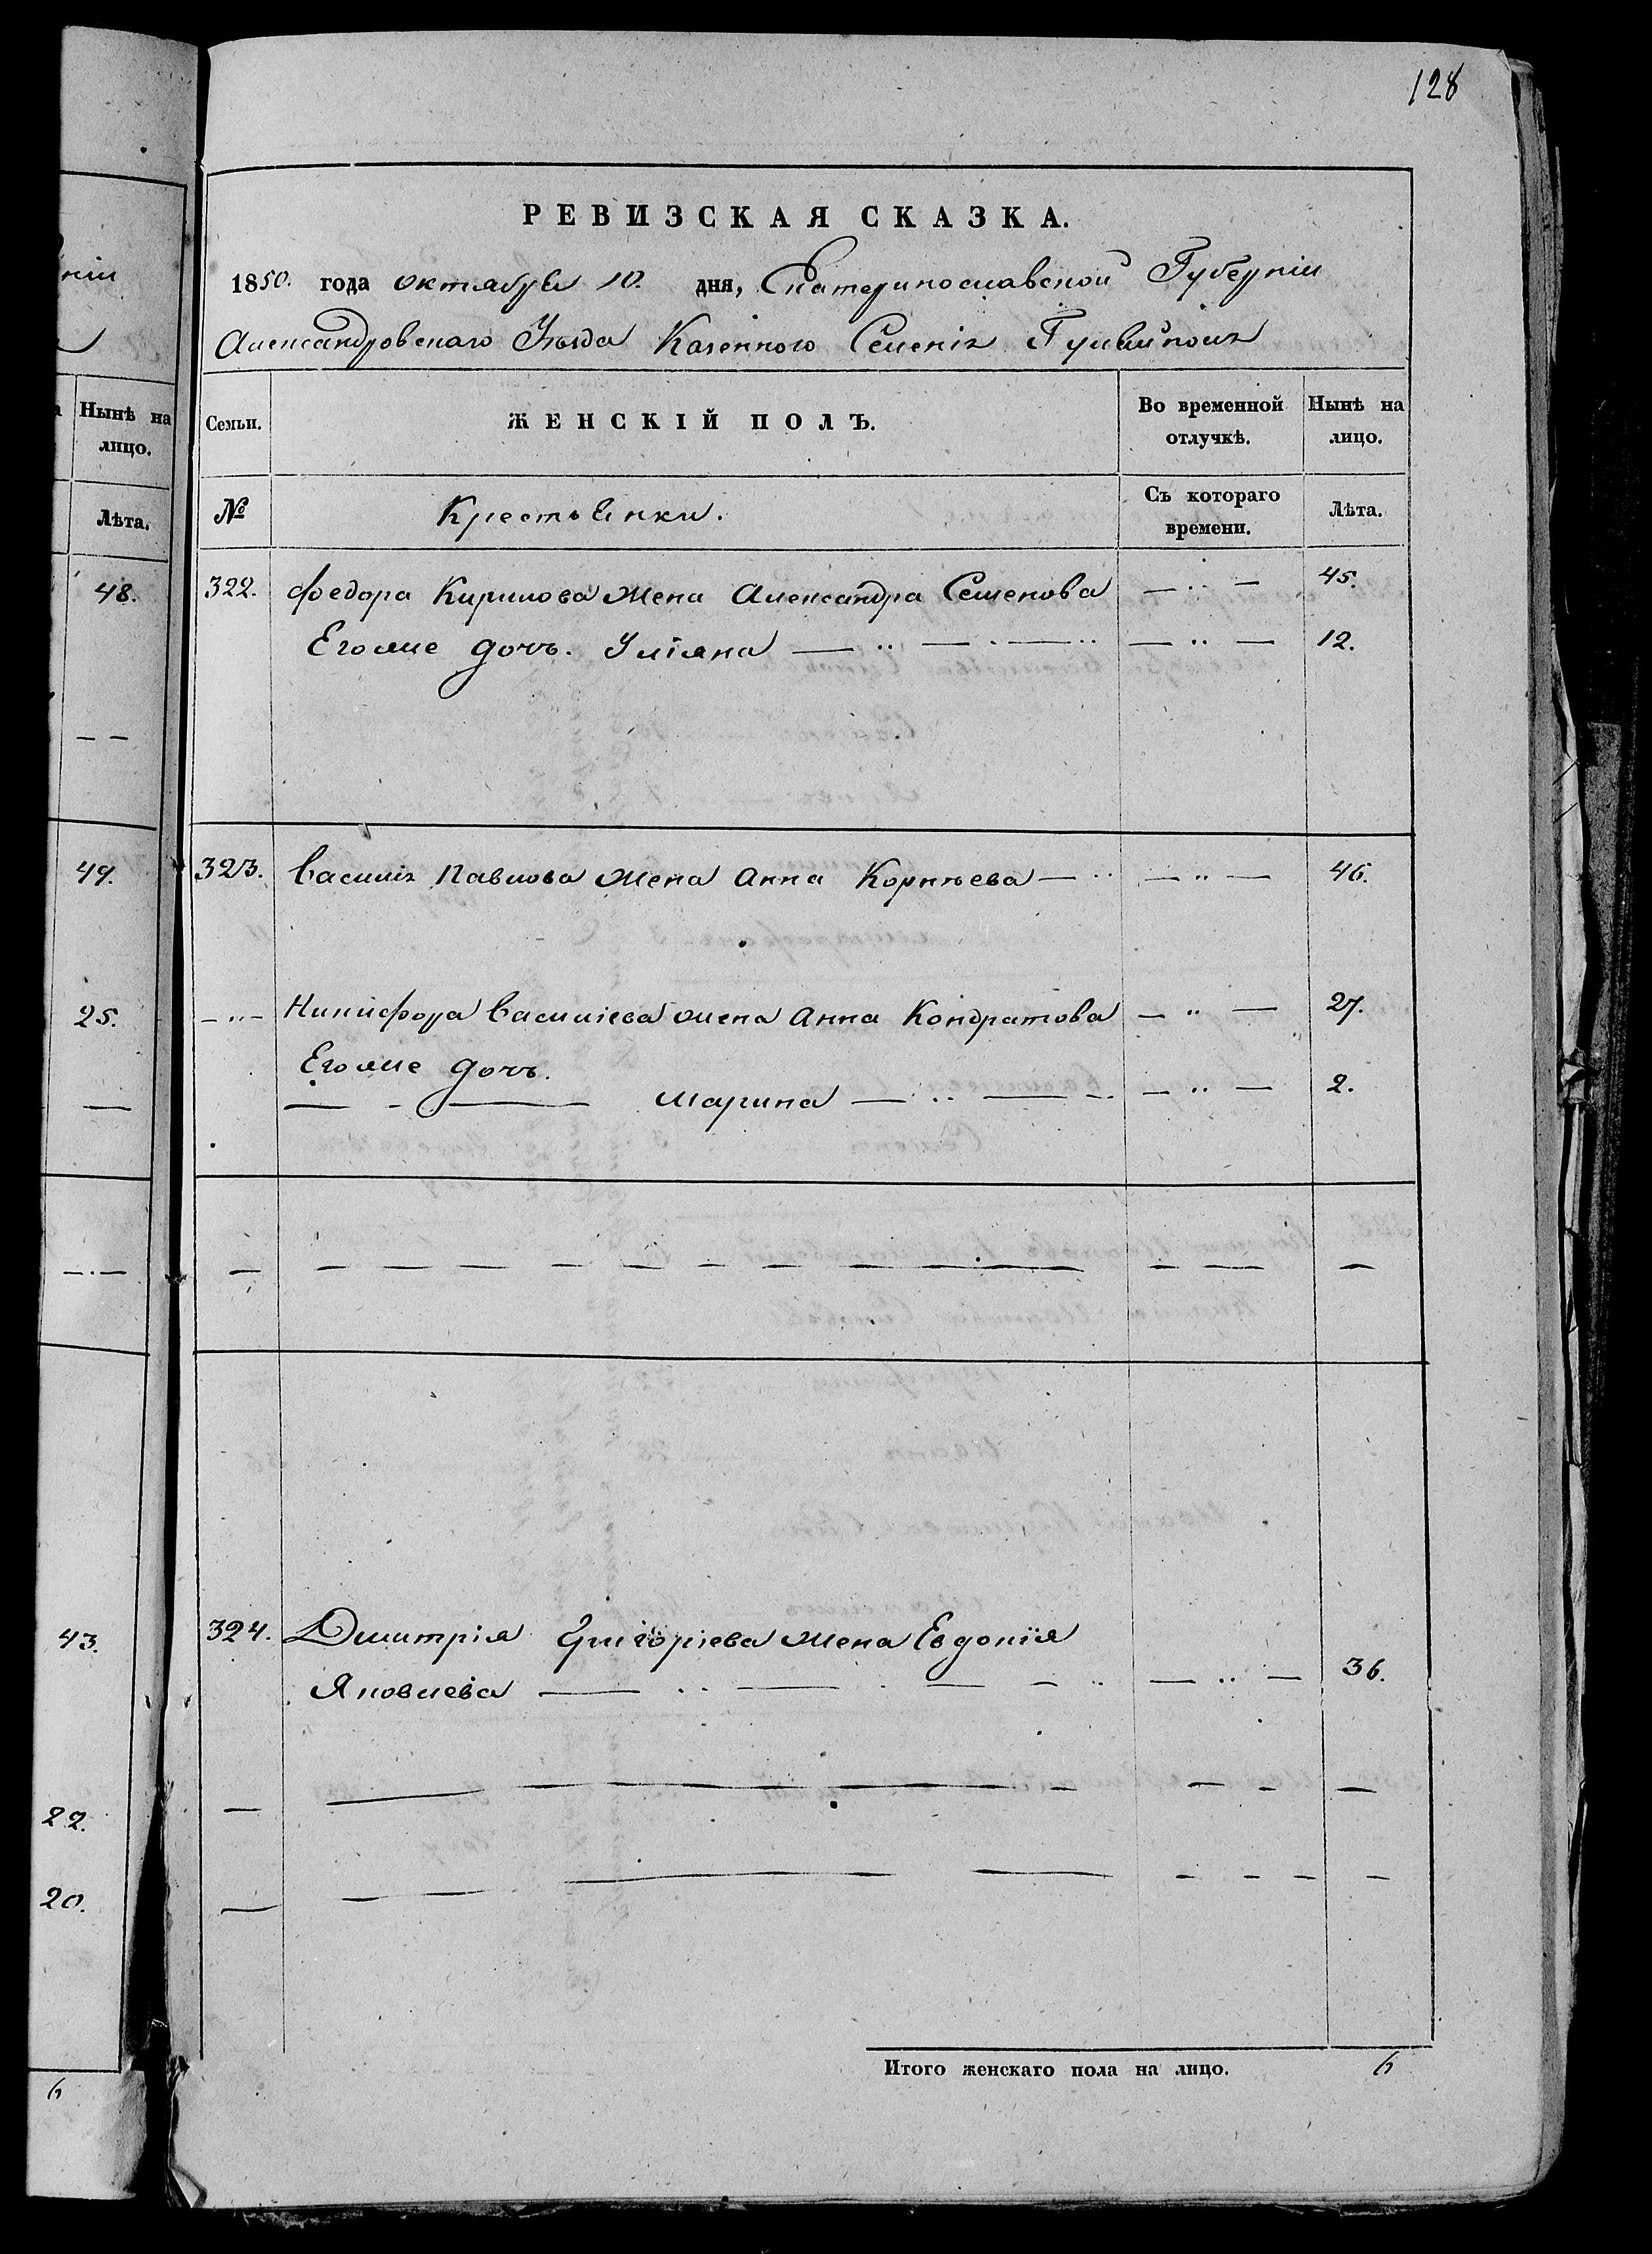 128
РЕВИЗСКАЯ СКАЗКА.
1850. года октября 10. дня, Екатеринославской Губерніи
Александровскаго Уѣзда Казенного Селенія Гуляйполя
ніи
а Нынѣ на
лицо.
Лѣта.
48.
— —
49.
25.
—
—.—
43.
22.
20.
6
Семьи. ЖЕНСКІЙ ПОЛЪ. Во временной отлучкѣ. Нынѣ на лицо.
№ Крестьянки. Съ котораго времени. Лѣта.
322. Федора Кирилова жена Александра Семенова — .. — 45.
Егоже дочь. Уліяна — .. — . — .. — .. — 12.
323. Василія Павлова жена Анна Корнѣева — .. — .. — 46.
— .. — Никифора Василіева жена Анна Кондратова — .. — 27.
Егоже дочь.
— - — Марина — .. — .. — .. — 2.
324. Дмитрія Григоріева жена Евдокія
Яковлева — .. — . — - .. — .. — 36.
Итого женскаго пола на лицо. 6